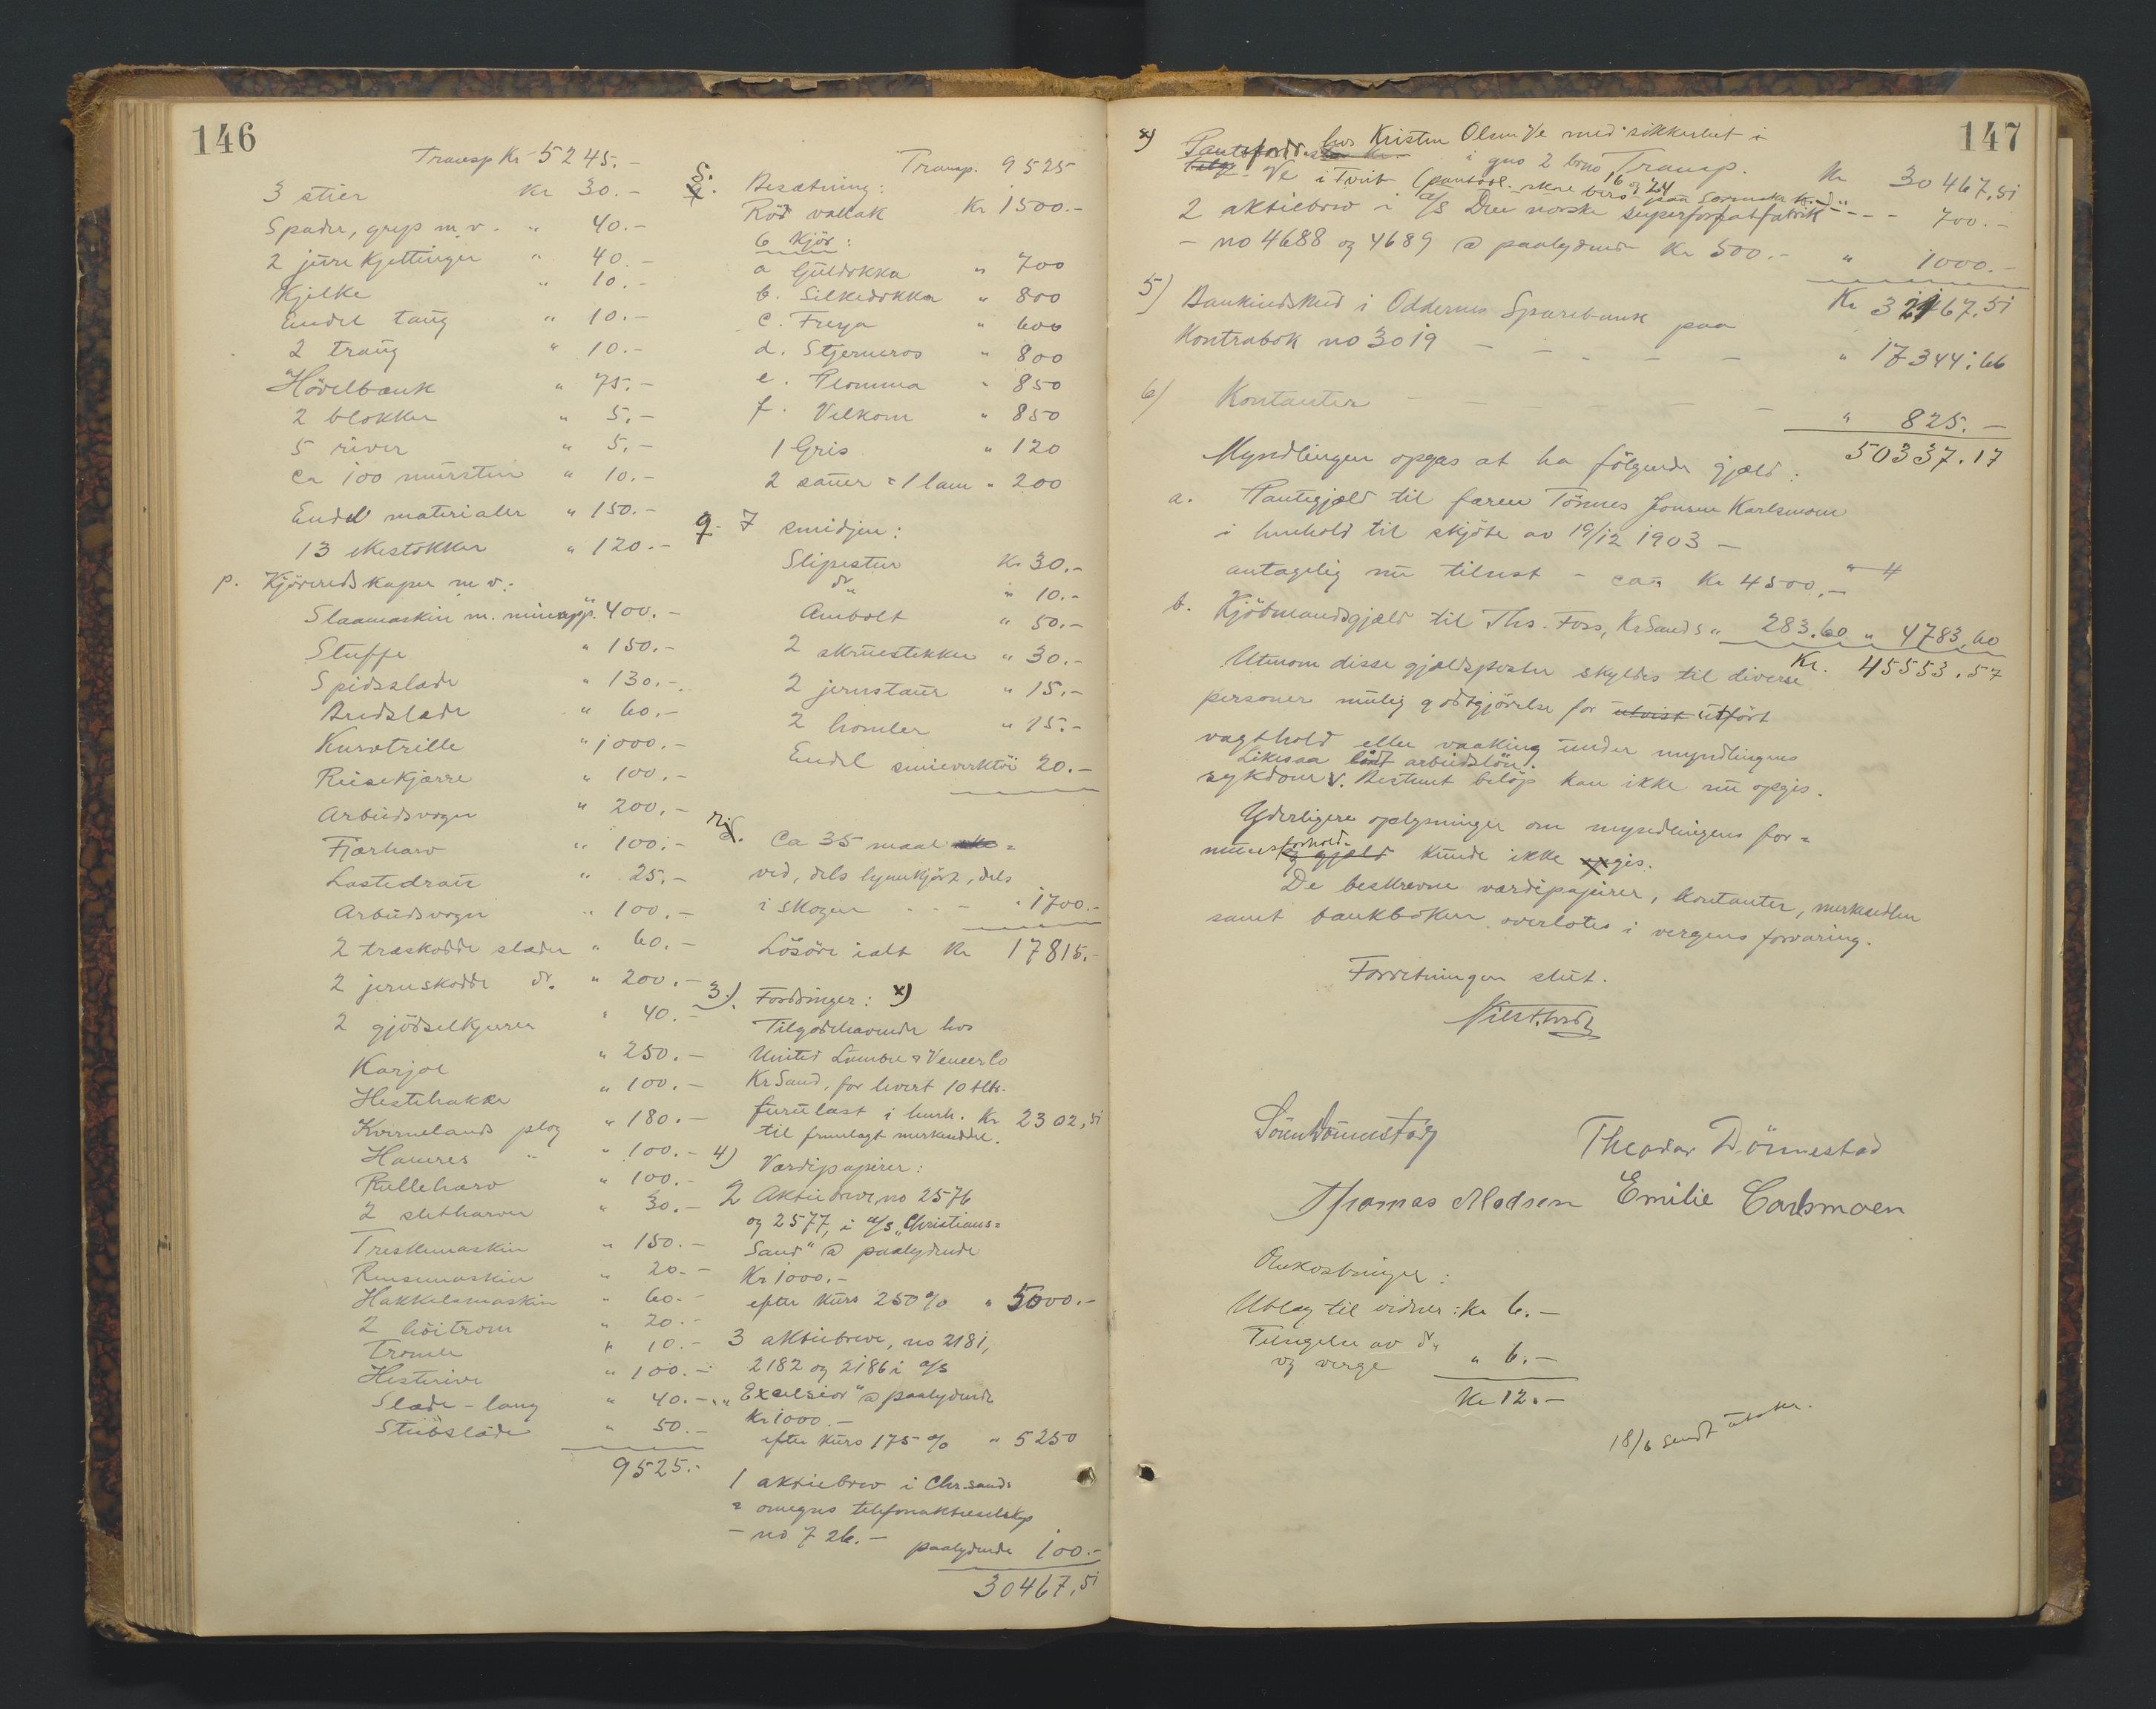 146
Transp Kr 5245.-
3 stier Kr 30.-
Spader, grep m.v. " 40.-
2 jern Kjettinger " 40.-
Kjelke " 10.-
Endel taug " 10.-
2 traug " 10.-
Hövelbænk " 75.-
2 blokker " 5.-
5 river " 5.-
Ca 100 mursten " 10.-
Endel materialer " 150.-
13 ekestokker " 120.-
p. Kjöreredskaper m.v.:
Slaamaskin m. " 400.-
Stuffe " 150.-
Spidsslæde " 130.-
Bredslæde " 60.-
Kurvtrille " 1000.-
Reisekjærre " 100.-
Arbeidsvogn " 200.-
Fjærharv " 100.-
Lastedrau " 25.-
Arbeidsvogn " 100.-
2 træskodde slæder " 60.-
2 jernskodde do. " 200.-
2 gjödselkjærrer " 40.-
Karjol " 250.-
Hestehakke " 100.-
Kvernelands plog " 180.-
Hamres " " 100.-
Rulleharv " 100.-
2 sletharver " 30.-
Treskemaskin " 150.-
Rensemaskin " 20.-
Hakkelsmaskin " 60.-
2 höitrom " 20.-
Tromle " 10.-
Hesterive " 100.-
Slæde - lang " 40.-
Stubslæde " 50.-
9525.-
Transp. 9525
s. Besætning:
Röd vallak Kr 1500.-
6 Kjör:
a Guldokka " 700
b. Silkedokka " 800
c. Freya " 600
d. Stjerneros " 800
e. Plomma " 850
f. Velkom " 850
1 Gris " 120
2 sauer = 1 lam " 200
q. I smidjen:
Slipesten Kr 30.-
do " 10.-
Ambolt " 50.-
2 skruestikker " 30.-
2 jernstaur " 15.-
2 " 15.-
Endel smieverktöi 20.-
r. Ca 35 maal
ved, dels hjemkjört, dels
i skogen - - - " 1700.-
Lösöre ialt Kr 17815.-
3.) Fordringer: x)
Tilgodehavende hos
United Lumber & Veneer Co
KrSand, for levert 10 tlts.
furulast i henh. Kr 2302,51
til fremlagt merkeseddel.
4) Værdipapirer:
2 Aktiebreve, no 2576
og 2577, i a/s „Christians=
Sand" @ paalydende
Kr 1000.-
efter kurs 250 % " 5000.-
3 aktiebreve, no 2181,
2182 og 2186 i a/s
„Excelsior" @ paalydende
Kr 1000.-
efter kurs 175 % " 5250
1 aktiebrev i Chr.sands
= omegns telefonaktieselskap
- no 726.- paalydende 100.-
30467,51
147
x) hos Kristen Olsen Ve med sikkerhet i
Ve i Tveit i gno 2 bno 16 og 24 Transp. Kr 30467,51
700.-
2 aktiebrev i a/s Den norske superfosfatfabrik
- no 4688 og 4689 @ paalydende Kr 500.- " 1000.-
Kr 32167,51
5) Bankindskud i Oddernes Sparebank paa
Kontrabok no 3019 - - - - - " 17344.66
6) Kontanter - - - - - " 825.-
50337.17
Myndlingen opgas at ha fölgende gjæld:
a. Pantegjæld til faren Tönnes Jensen Karlsmoen
i henhold til skjöte av 19/12 1903 -
antagelig nu tilrest - ca. Kr 4500,-
b. Kjöbmandsgjæld til Ths. Foss, KrSands " 283.60 " 4783,60
Kr. 45553.57
Utenom disse gjældsposter skyldes til diverse
personer mulig godtgjörelse for utvist utfört
vagthold eller vaaking under myndlingens
Likesaa arbeidslön.
sykdom. Bestemt belöp kan ikke nu opgis.
Yderligere oplysninger om myndlingens for=
muesforhold og gjæld kunde ikke opgis.
De beskrevne værdipapirer, kontanter, merkesedlen
samt bankboken overlotes i vergens forvaring.
Forretningen slut.
Theodor Dönnestad
Thomas Madsen Emilie Carlsmoen
Omkostninger:
Utlæg til vidner: Kr 6.-
Tilsigelse av do
og verge " 6.-
Kr 12.-
18/6 sendt utskr.